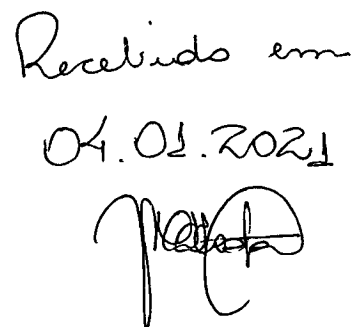 Recebido em
04.01.2021